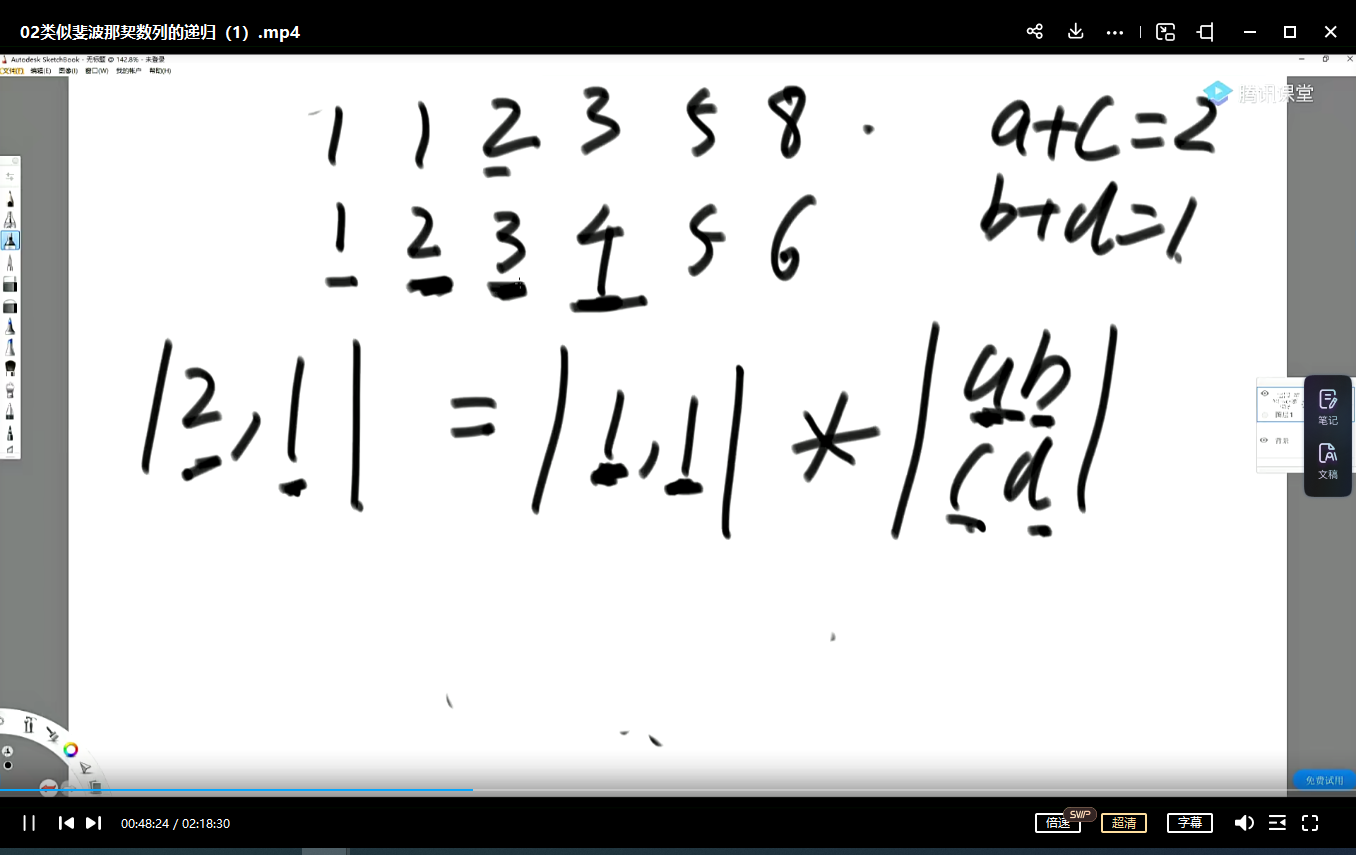 02类似斐波那契数列的递归（1）.mp4
Autodesk SketchBook - 无标题 @ 142.8% - 未登录
文件(F) 编辑(E) 图像(I) 窗口(W) 我的帐户 帮助(H)
腾讯课堂
1 1 2 3 5 8 .
a+c=2
1 2 3 4 5 6
b+d=1.
|2,1| = |1,1| * |a b
c d|
笔记
文稿
图层1
背景
免费试用
00:48:24 / 02:18:30
倍速
SWP
超清
字幕